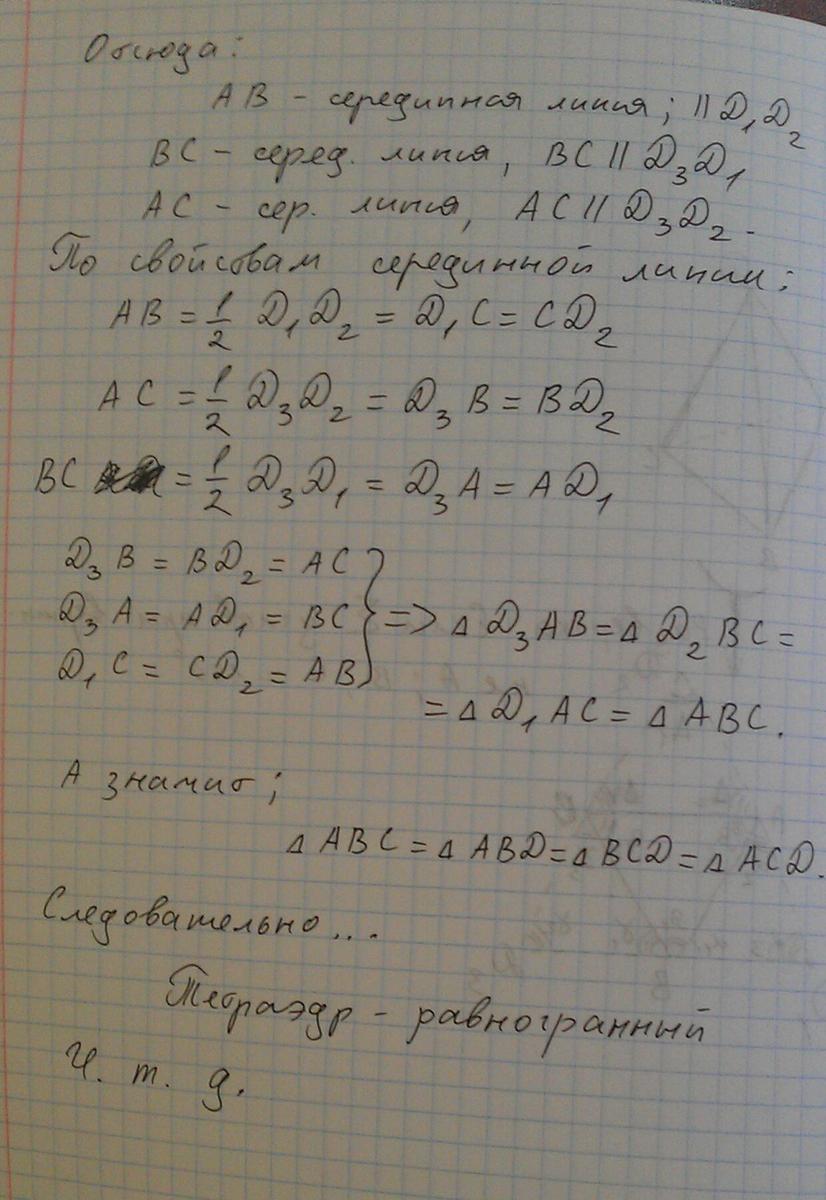 Отсюда:
AB - серединная линия; || D₁D₂
BC - серед. линия, BC || D₃D₁
AC - сер. линия, AC || D₃D₂.
По свойствам серединной линии:
AB = 1/2 D₁D₂ = D₁C = CD₂
AC = 1/2 D₃D₂ = D₃B = BD₂
BC = 1/2 D₃D₁ = D₃A = AD₁
D₃B = BD₂ = AC
D₃A = AD₁ = BC } => △ D₃AB = △ D₂BC =
D₁C = CD₂ = AB
= △ D₁AC = △ ABC.
А значит;
△ ABC = △ ABD = △ BCD = △ ACD.
Следовательно...
Тетраэдр - равногранный
Ч. т. д.